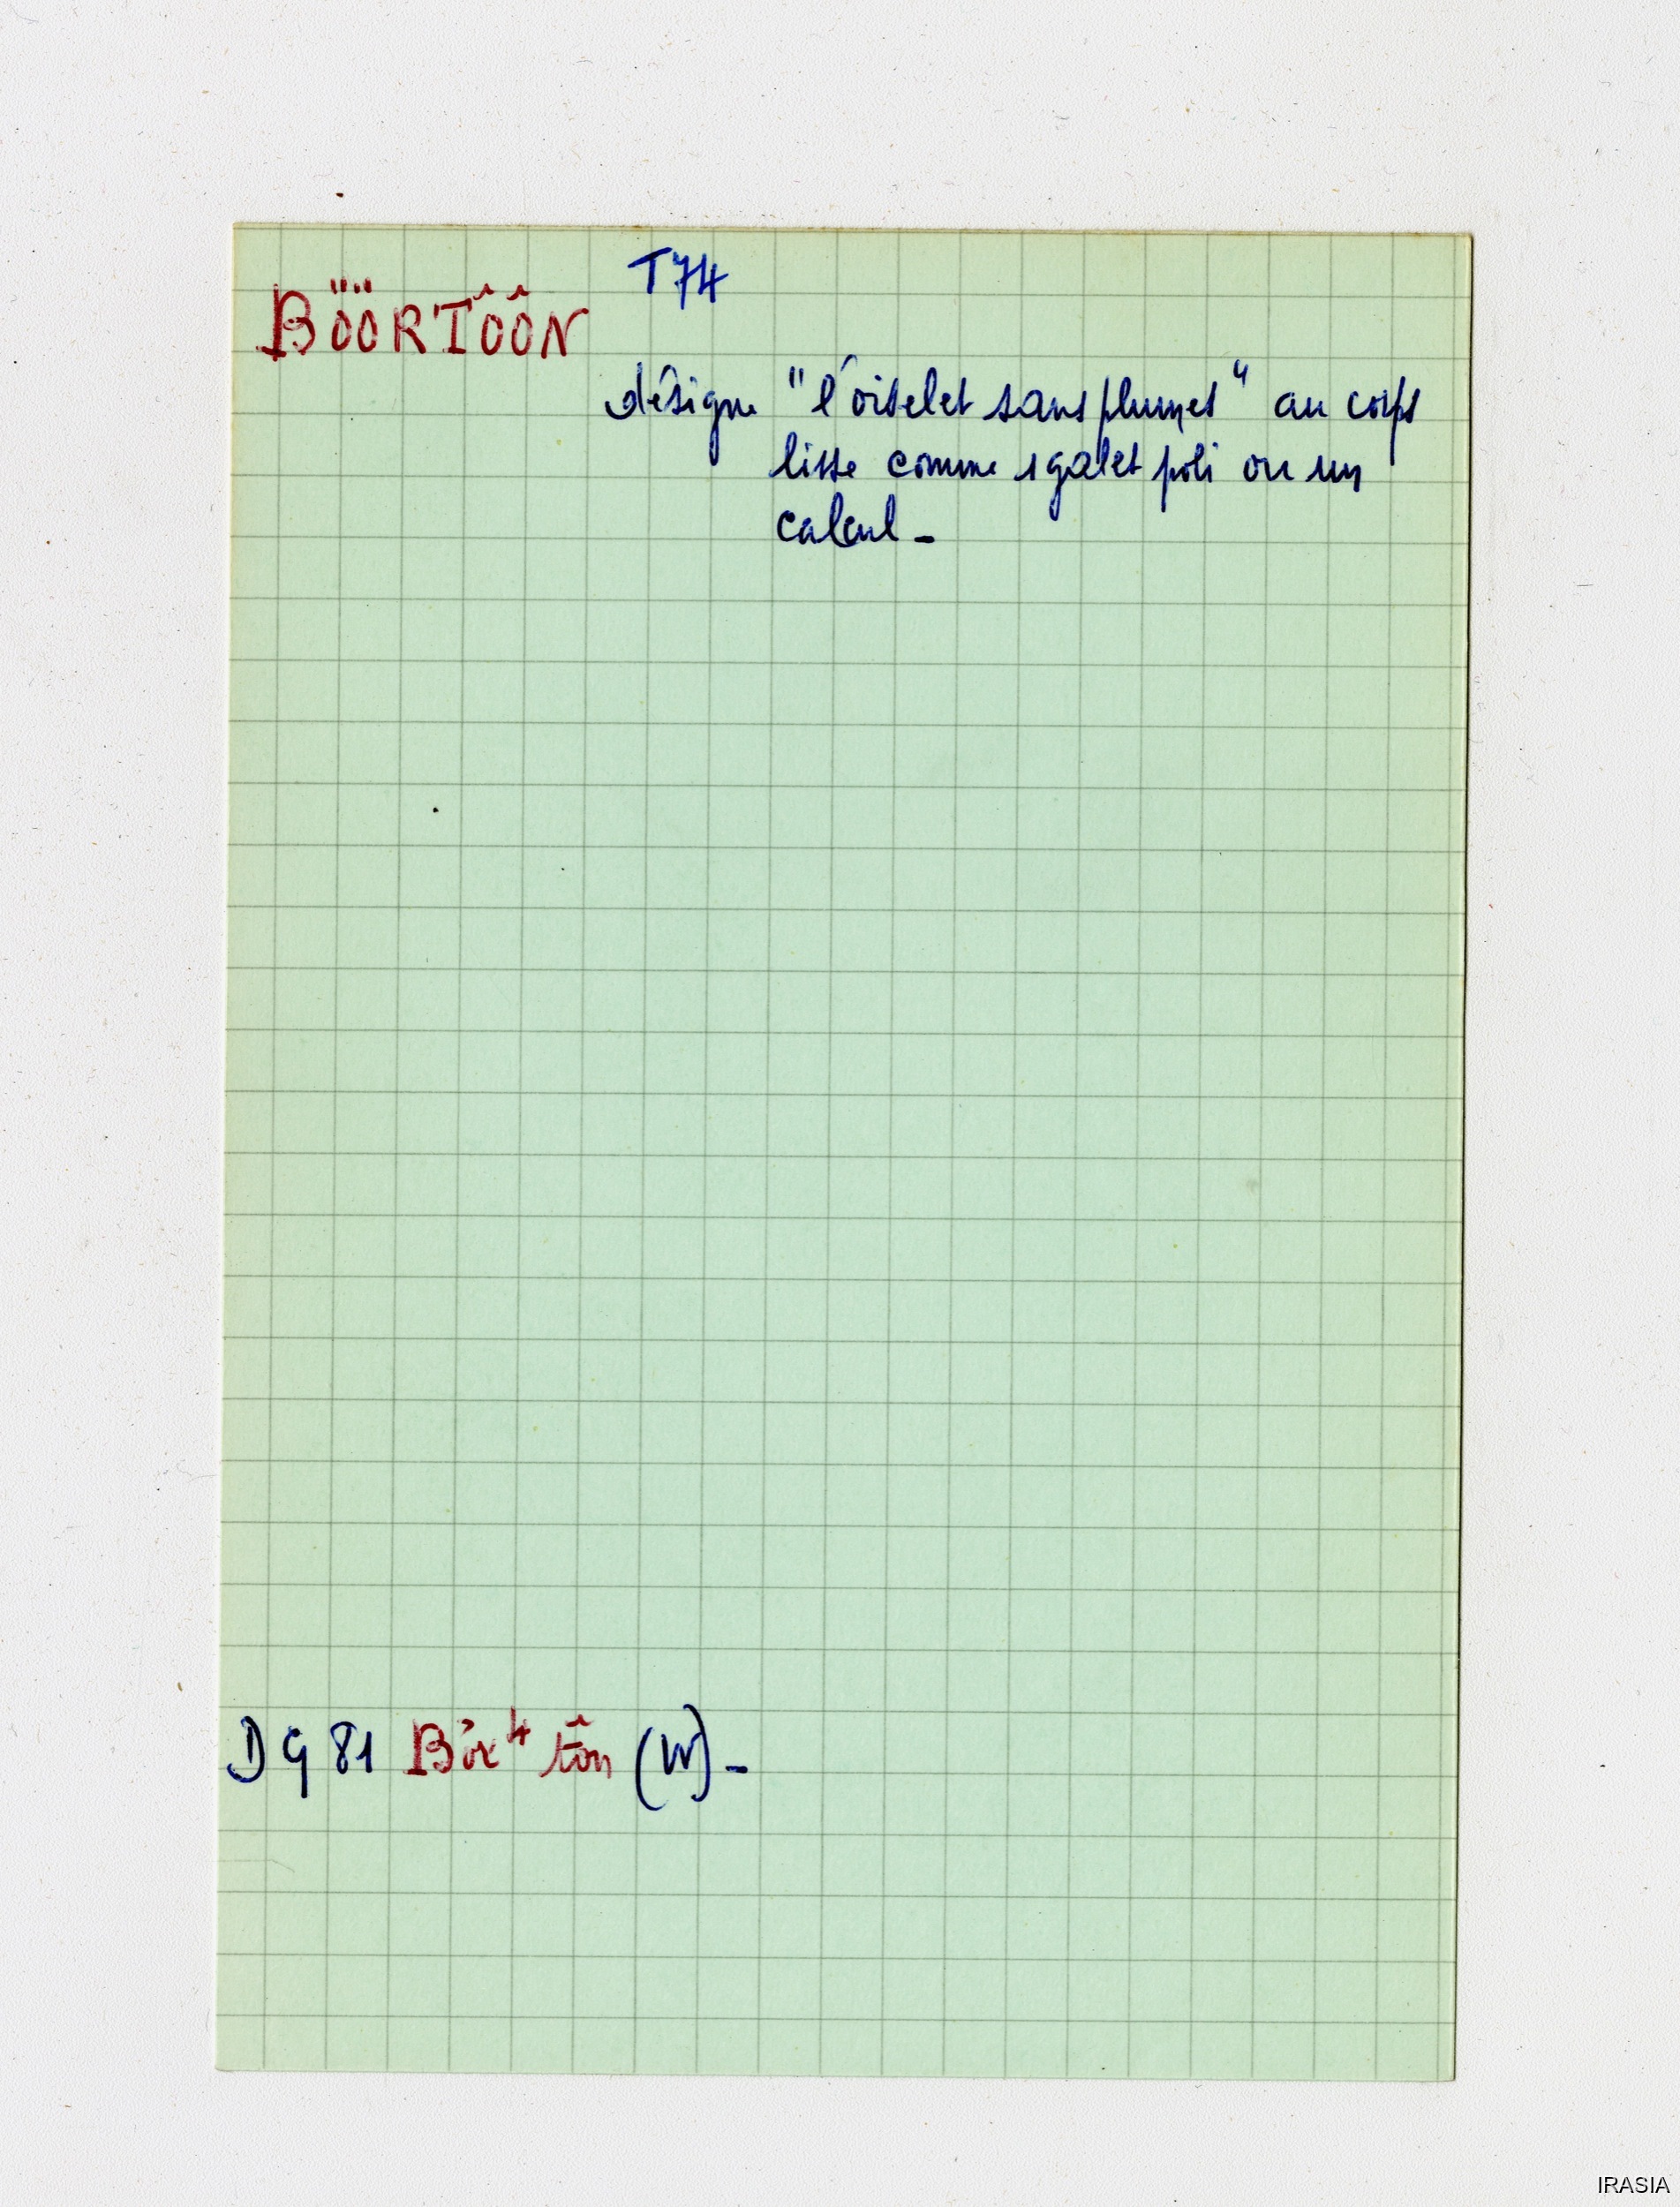 T74
BÖÖRTÔÔN
désigne "l'oiselet sans plumes" au corps
lisse comme 1 galet poli ou un
calcul -
81 (W) -
IRASIA